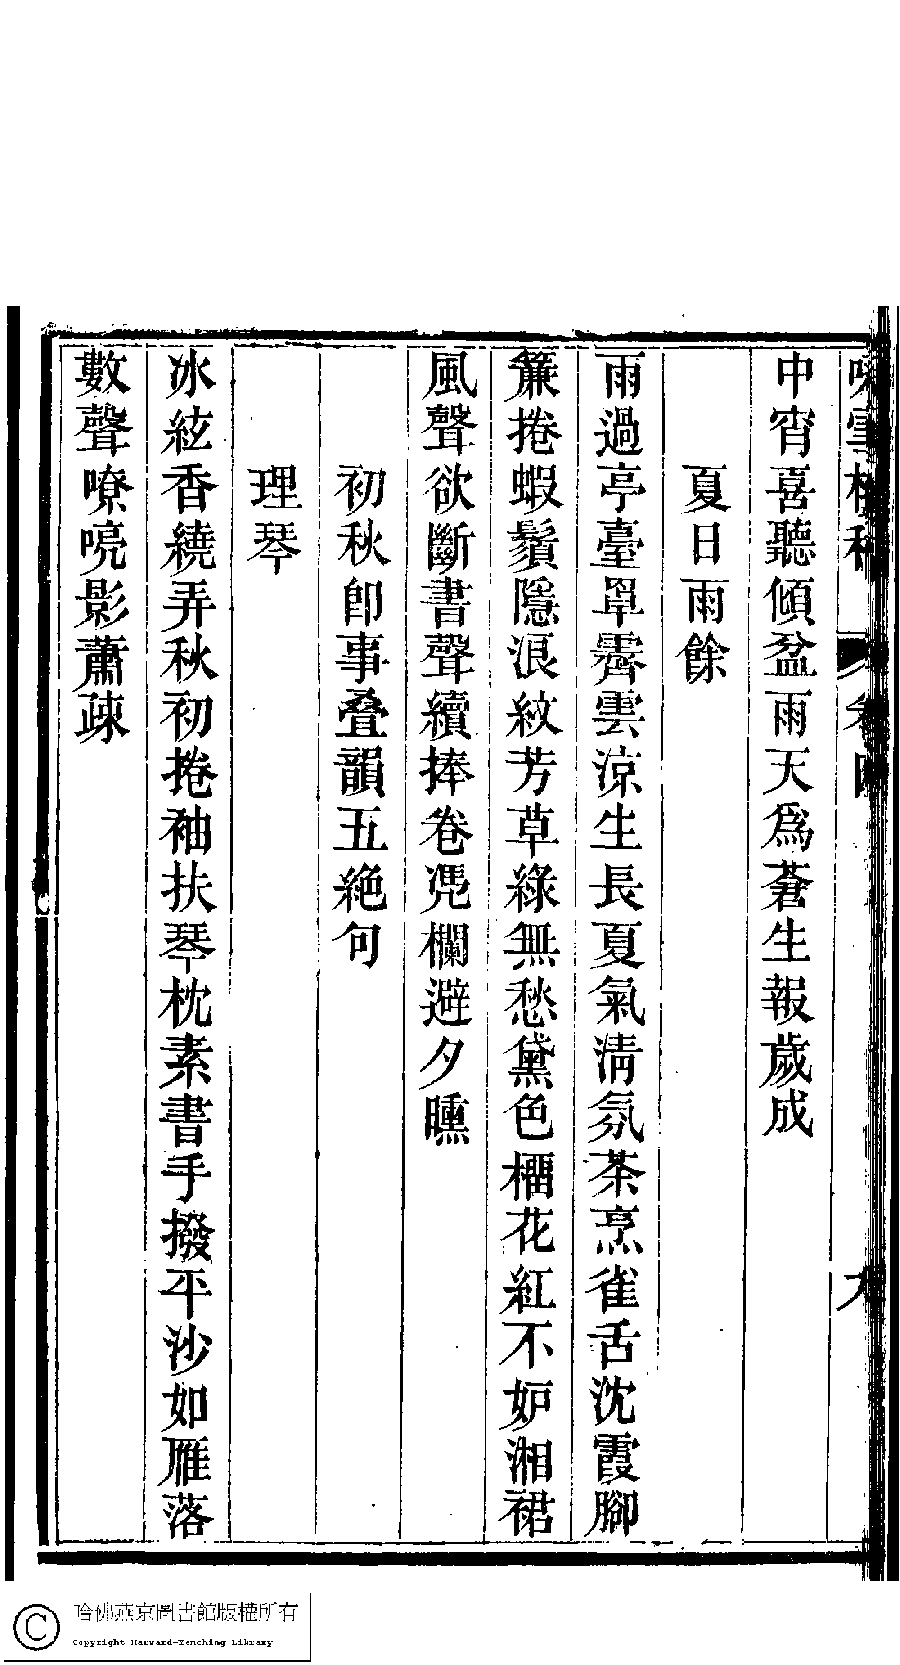 中宵喜聽傾盆雨天爲蒼生報歲成
夏日雨餘
雨過亭臺罩霽雲涼生長夏氣淸氛茶烹雀舌沈霞腳
簾捲蝦鬚隱浪紋芳草綠無愁黛色橊花紅不妒湘裙
風聲欲斷書聲續捧卷凭欄避夕曛
初秋卽事叠韻五絶句
理琴
冰絃香繞弄秋初捲袖扶琴枕素書手撥平沙如雁落
數聲嘹喨影蕭疎
哈佛燕京圖書館版權所有
Copyright Harvard-Yenching Library